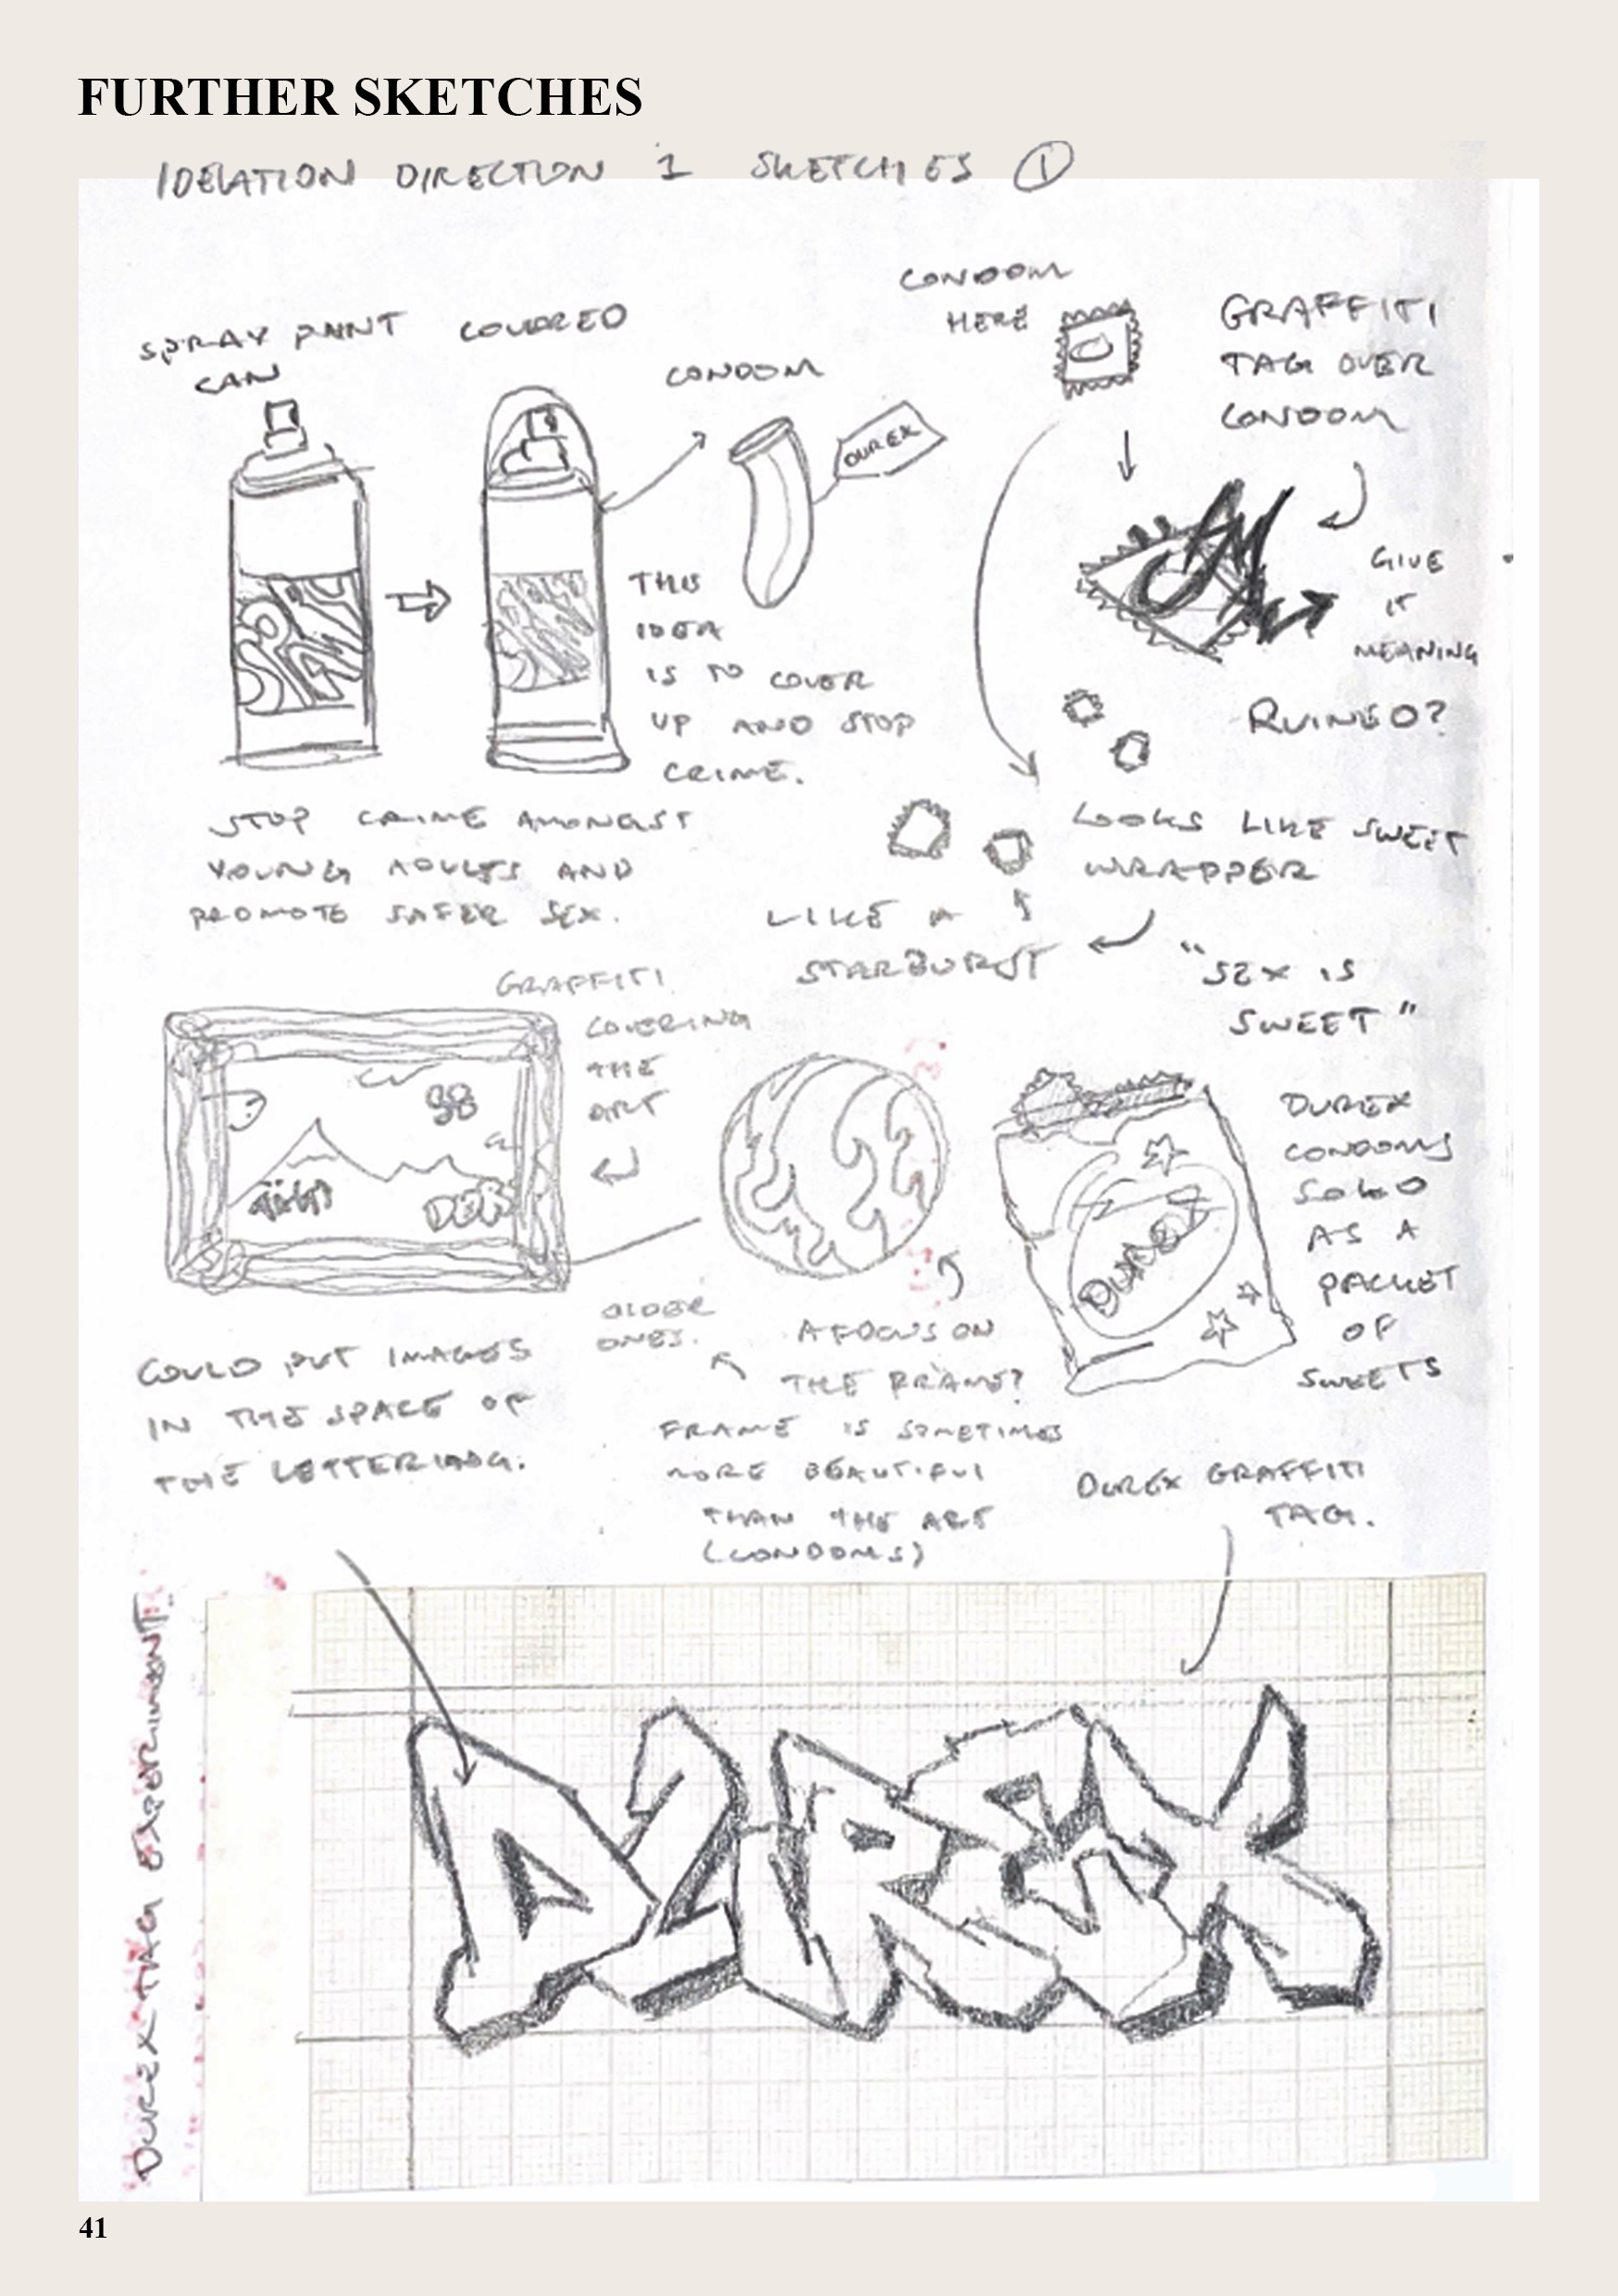 FURTHER SKETCHES
IDEATION DIRECTION 1 SKETCHES 1
SPRAY PAINT
CAN
COVERED
CONDOM
DUREX
THIS
IDEA
IS TO COVER
UP AND STOP
CRIME.
STOP CRIME AMONGST
YOUNG ADULTS AND
PROMOTE SAFER SEX.
CONDOM
HERE
GRAFFITI
TAG OVER
CONDOM
GIVE
IT
MEANING
RUINED?
LOOKS LIKE SWEET
WRAPPER
LIKE A
STARBURST
"SEX IS
SWEET"
GRAFFITI
COVERING
THE
ART
OLDER
ONES.
COULD PUT IMAGES
IN THE SPACE OF
THE LETTERING.
A FOCUS ON
THE FRAME?
FRAME IS SOMETIMES
MORE BEAUTIFUL
THAN THE ART
(CONDOMS)
DUREX
DUREX
CONDOMS
SOLD
AS A
PACKET
OF
SWEETS
DUREX GRAFFITI
TAG.
DUREX TAG EXPERIMENT.
DUREX
41